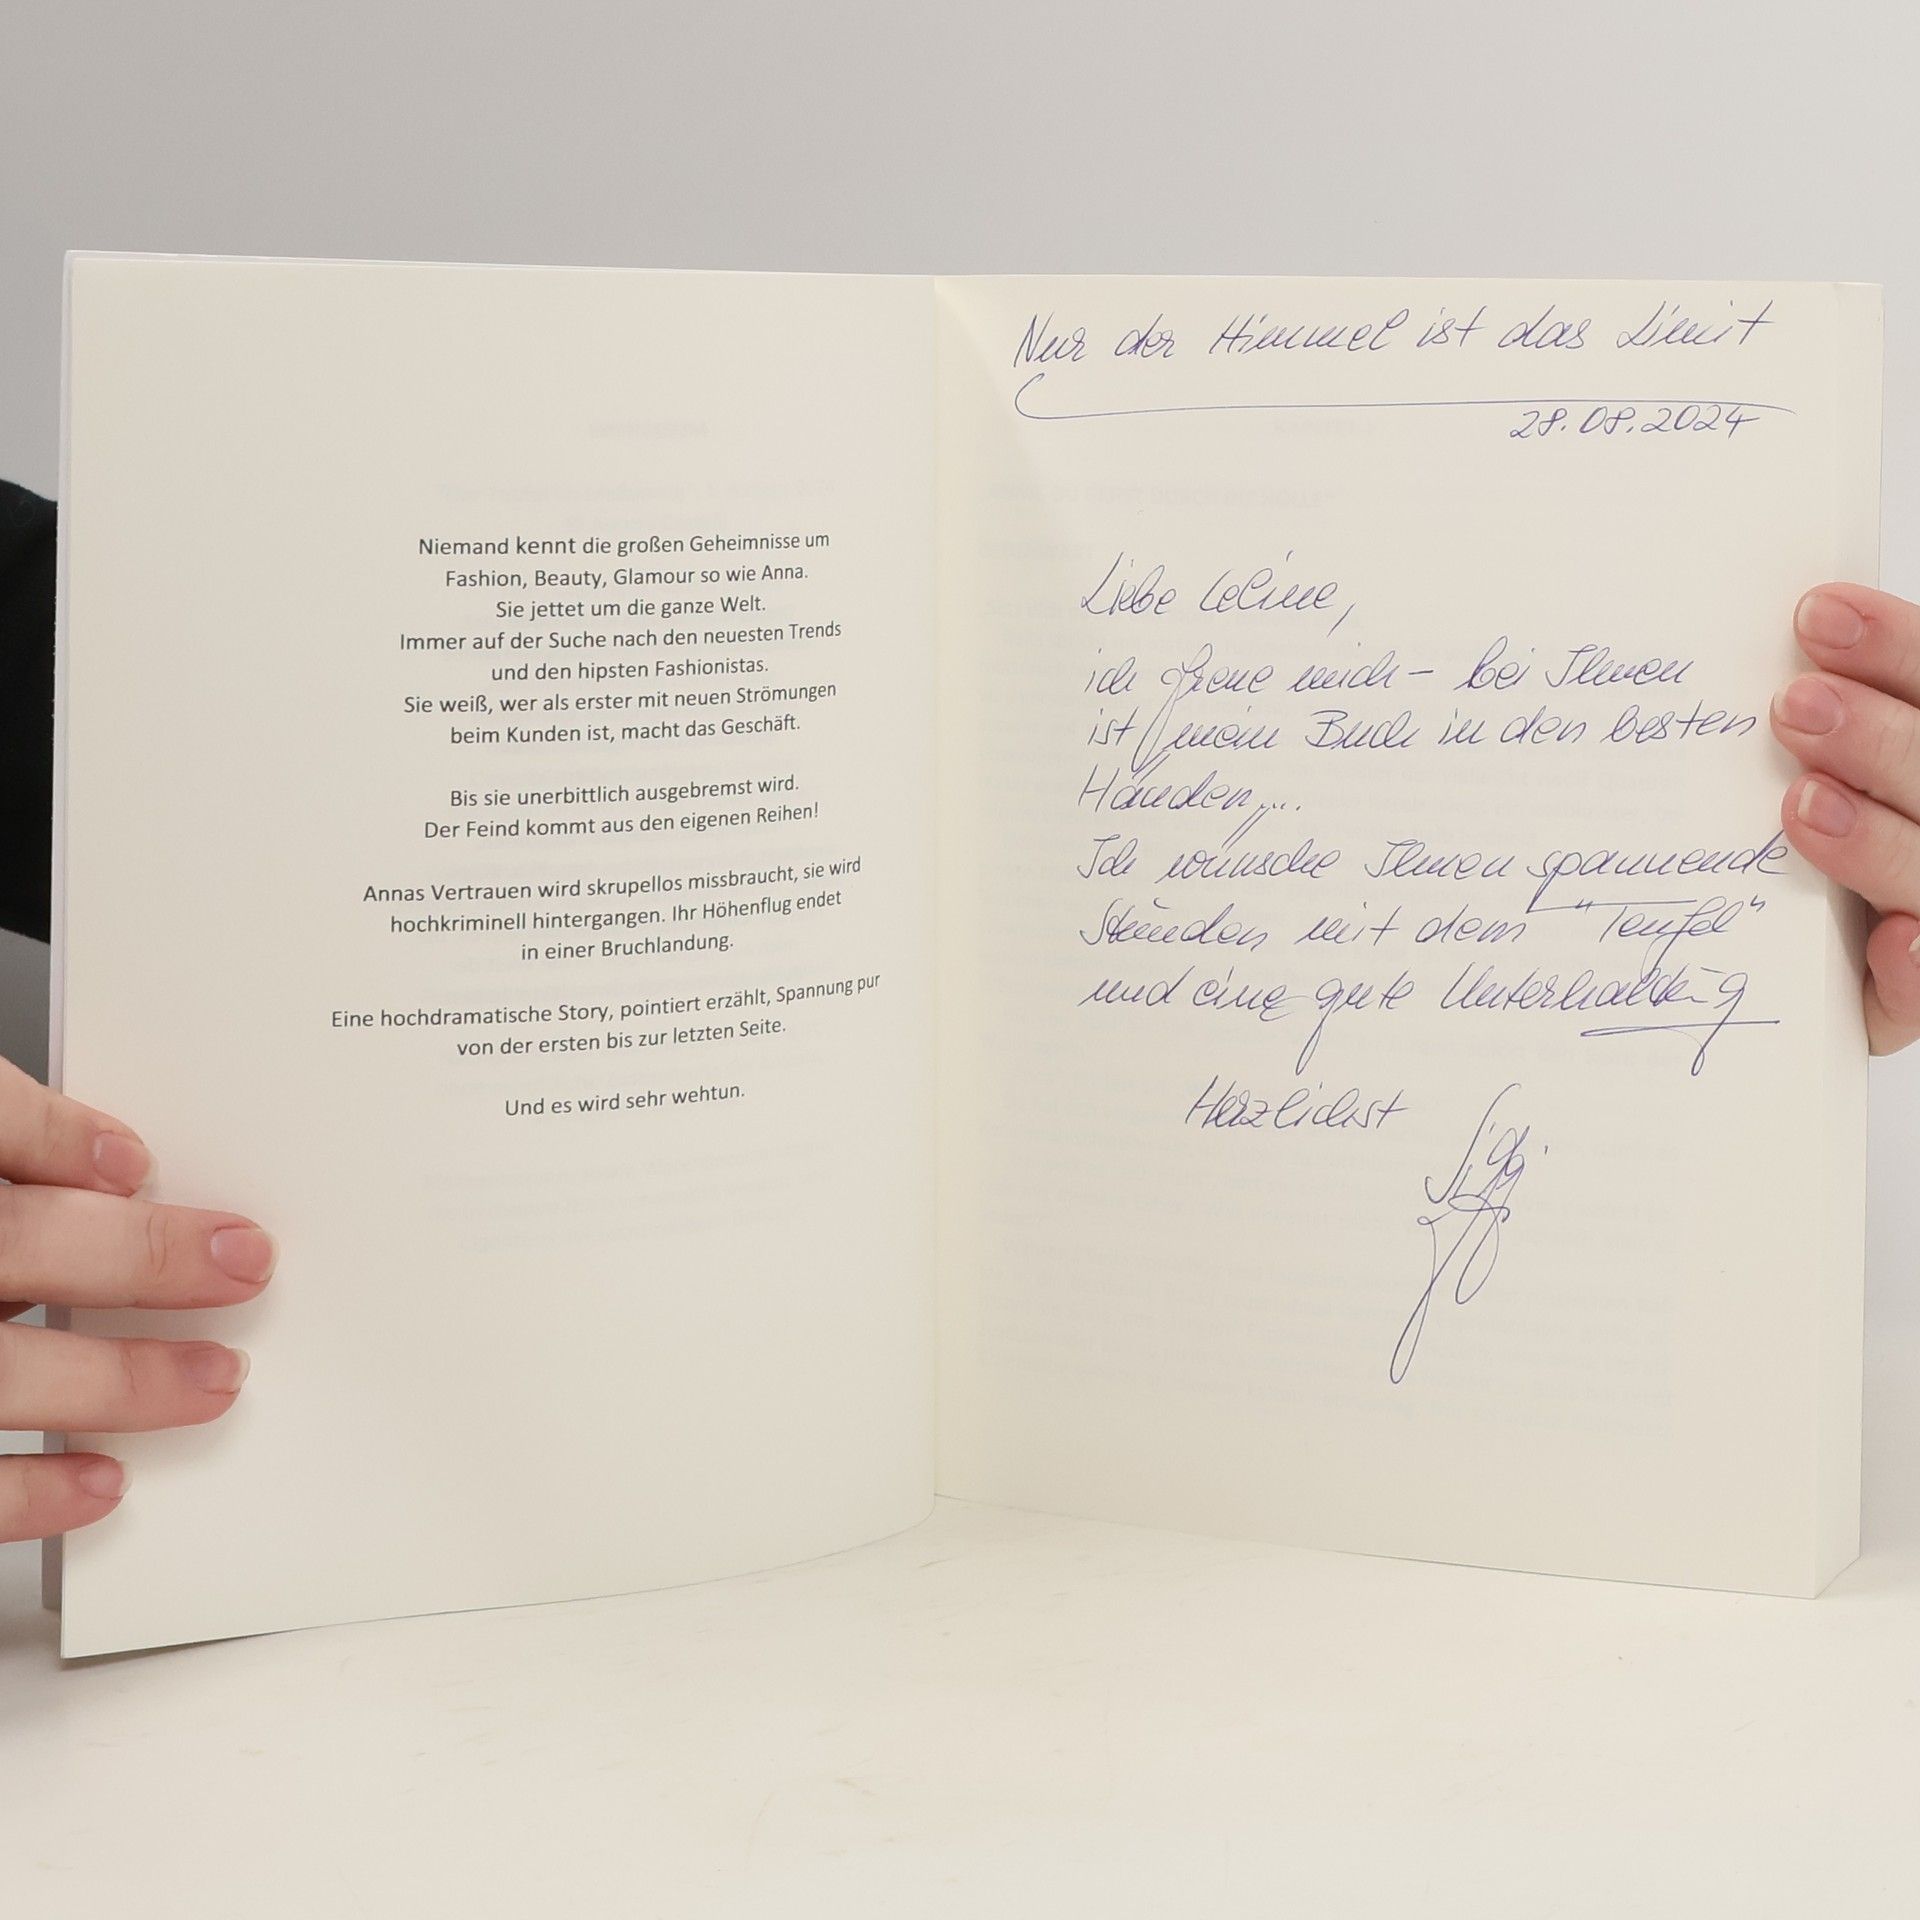 Niemand kennt die großen Geheimnisse um
Fashion, Beauty, Glamour so wie Anna.
Sie jettet um die ganze Welt.
Immer auf der Suche nach den neuesten Trends
und den hipsten Fashionistas.
Sie weiß, wer als erster mit neuen Strömungen
beim Kunden ist, macht das Geschäft.
Bis sie unerbittlich ausgebremst wird.
Der Feind kommt aus den eigenen Reihen!
Annas Vertrauen wird skrupellos missbraucht, sie wird
hochkriminell hintergangen. Ihr Höhenflug endet
in einer Bruchlandung.
Eine hochdramatische Story, pointiert erzählt, Spannung pur
von der ersten bis zur letzten Seite.
Und es wird sehr wehtun.
Nur der Himmel ist das Limit
28.08.2024
Liebe Celine,
ich freue mich – bei Ihnen
ist mein Buch in den besten
Händen,...
Ich wünsche Ihnen spannende
Stunden mit dem "Teufel"
und eine gute Unterhaltung
Herzlichst
Siggi